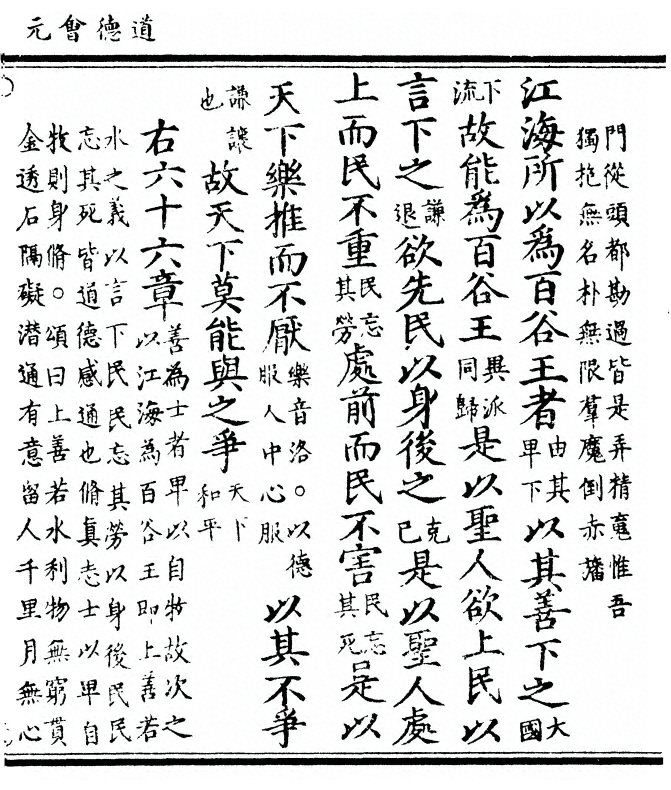 道德會元
門從頭都勘過皆是弄精䰟惟吾
獨抱無名朴無限羣魔倒赤旛
江海所以爲百谷王者由其卑下以其善下之大國
下流故能爲百谷王異派同歸是以聖人欲上民以
言下之謙退欲先民以身後之克己是以聖人處
上而民不重民忘其勞處前而民不害民忘其死是以
天下樂推而不厭樂音洛。以德服人中心服以其不爭
謙讓也故天下莫能與之爭天下和平
右六十六章善為士者卑以自牧故次之以江海為百谷王即上善若
水之義以言下民民忘其勞以身後民民
忘其死皆道德感通也脩真志士以卑自
牧則身脩。頌曰上善若水利物無窮貫
金透石隔礙潛通有意留人千里月無心